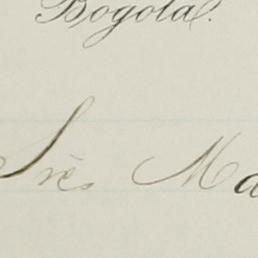 Bogotá.
Srès Ma